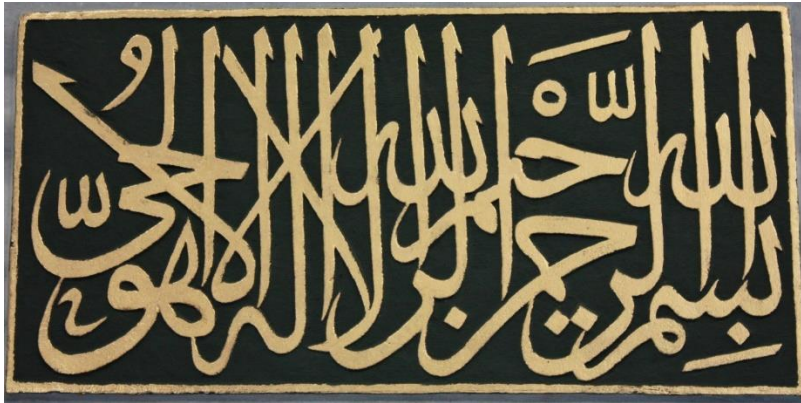 بسم الله الرحمن الرحيم الله لا اله الا هو الحي